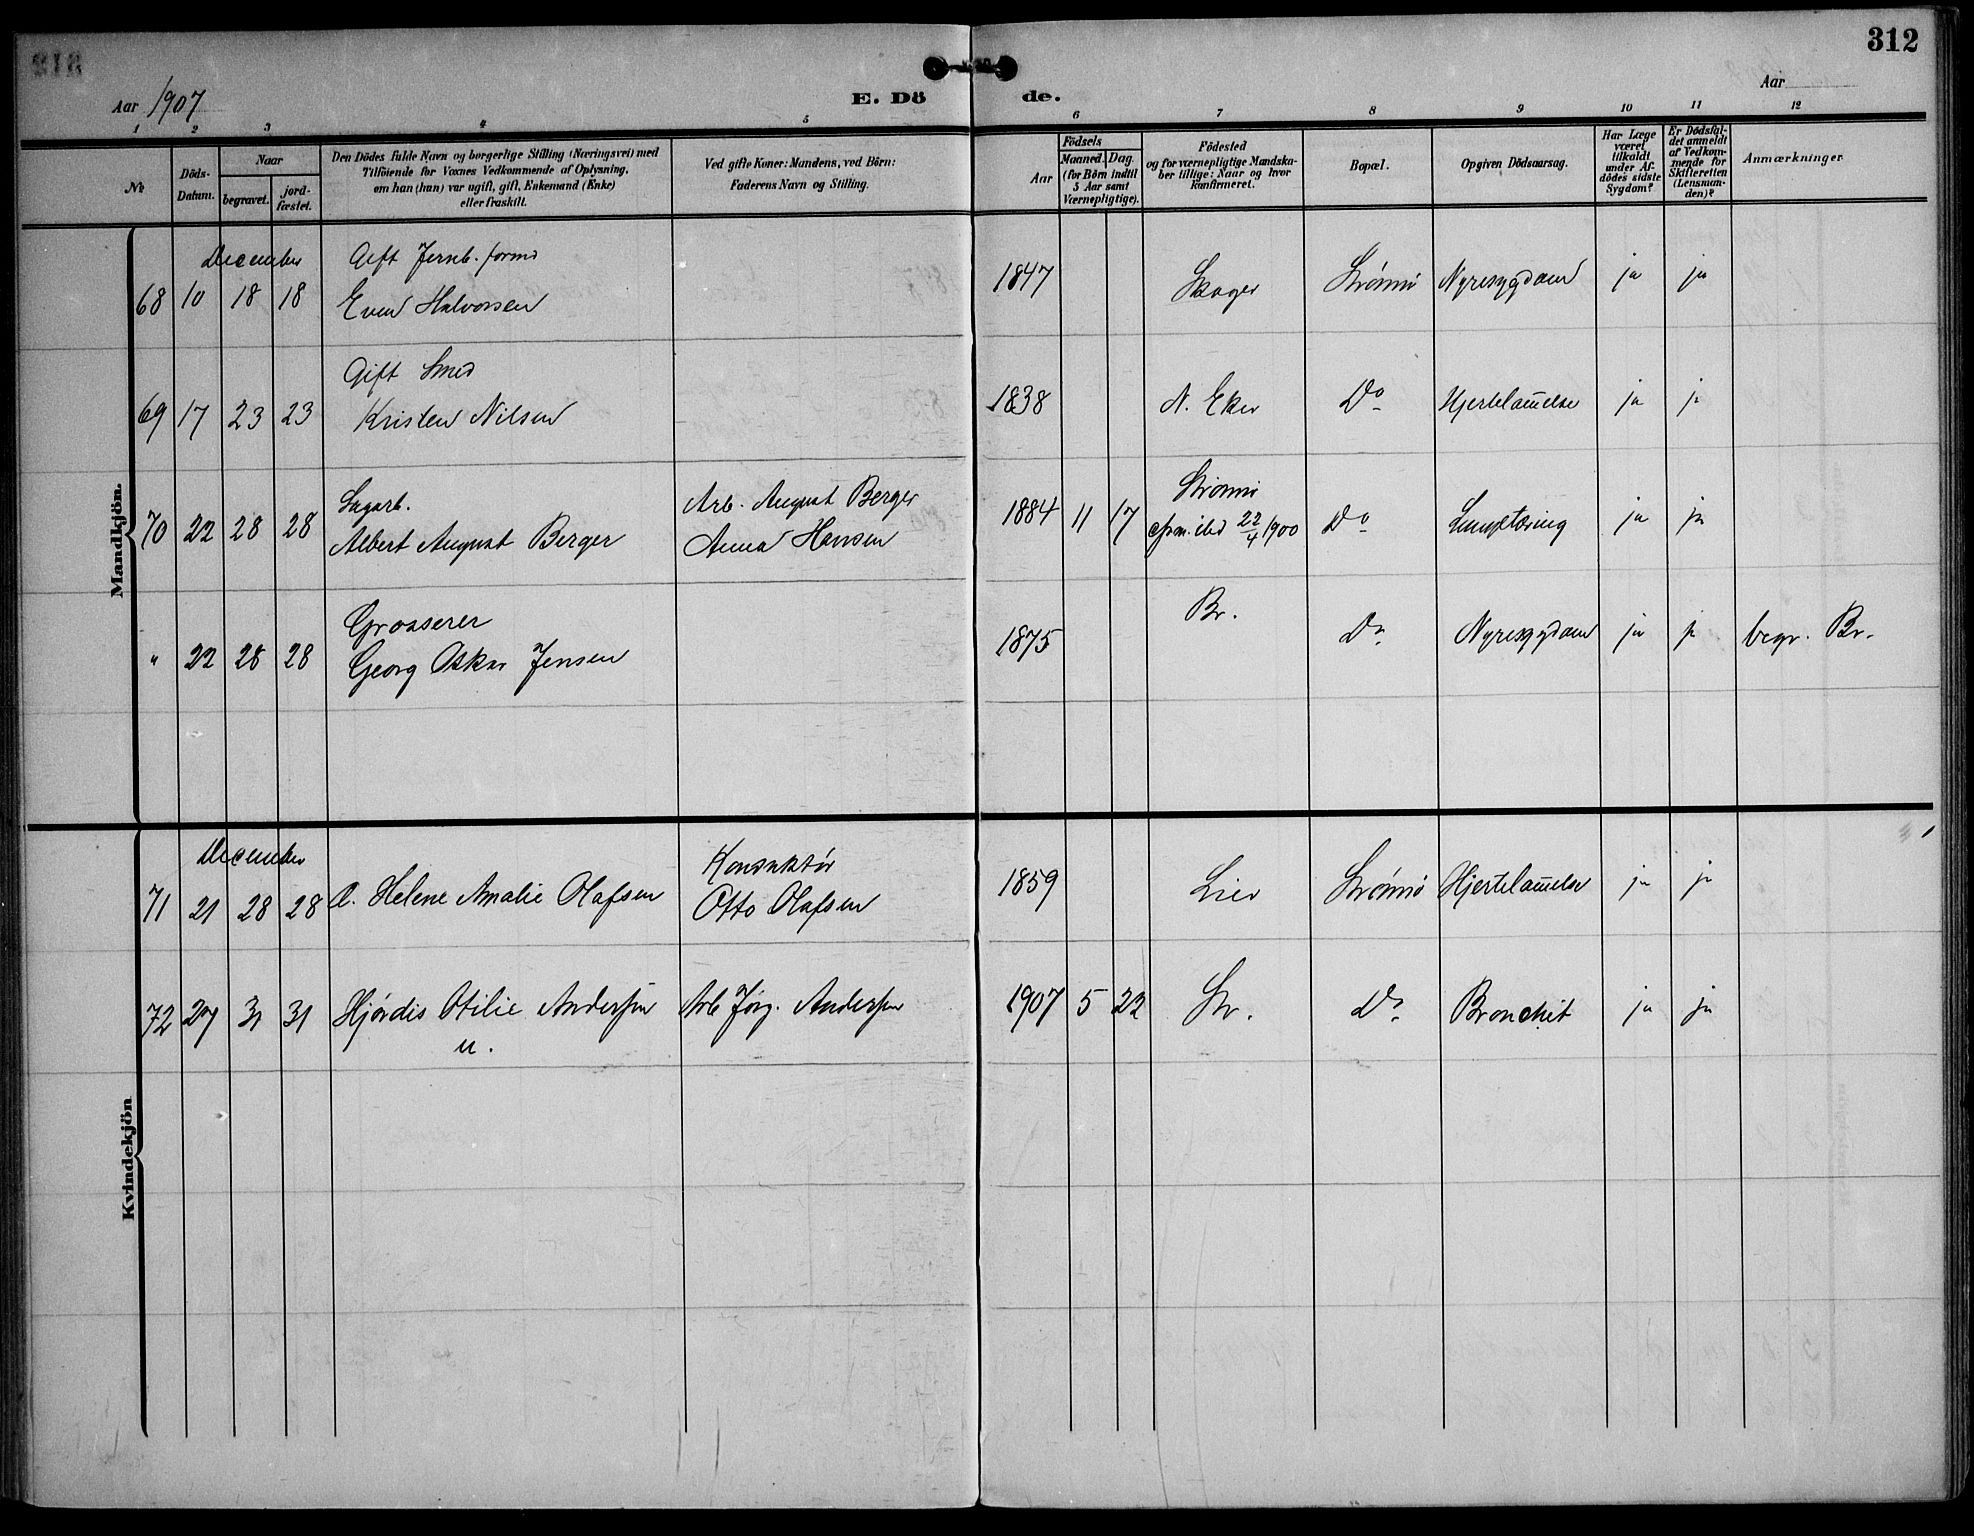 312
Aar 1907
E. Dö
de.
Aar
1 2 3 4 5 6 7 8 9 10 11 12
№
Döds-
Datum.
Naar
begravet.
jord-
fæstet.
Den Dödes fulde Navn og borgerlige Stilling (Næringsvei) med
Tilföiende for Voxnes Vedkommende af Oplysning,
om han (hun) var ugift, gift, Enkemand (Enke)
eller fraskilt.
Ved gifte Koner: Mandens, ved Börn:
Faderens Navn og Stilling.
Födsels
Aar
Maaned. Dag
(for Börn indtil
5 Aar samt
Værnepligtige).
Födested
og for værnepligtige Mandska-
ber tillige: Naar og hvor
konfirmeret.
Bopæl.
Opgiven Dödsaarsag.
Har Læge
været
tilkaldt
under Af-
dödes sidste
Sygdom?
Er Dödsfal-
det anmeldt
af Vedkom-
mende for
Skifteretten
(Lensman-
den)?
Anmærkninger
Mandkjön.
December
Gift Jernb. formd
68 10 18 18 Even Halvorsen 1847 Skoger Strømsø Nyresygdom ja ja
Gift Smed
69 17 23 23 Kristen Nilsen 1838 N. Eker Do Hjertelammelse ja ja
Sagarb.
70 22 28 28 Albert August Berger
Arb. August Berger
Anna Hansen
1884 11 17 Strømsø
ibid 22/4 1900 Do Lungetæring ja ja
Grosserer
" 22 28 28 Georg Oskar Jensen 1875 Br. Do Nyresygdom ja ja begr. Br.
Kvindekjön
December
71 21 28 28 Helene Amalie Olafsen
Konduktør
Otto Olafsen
1859 Lier Strømsø Hjertelammelse ja ja
72 27 31 31 Hjørdis Otilie Andersen
u.
Arb Jørg. Andersen 1907 5 22 Str. Do Bronchit ja ja